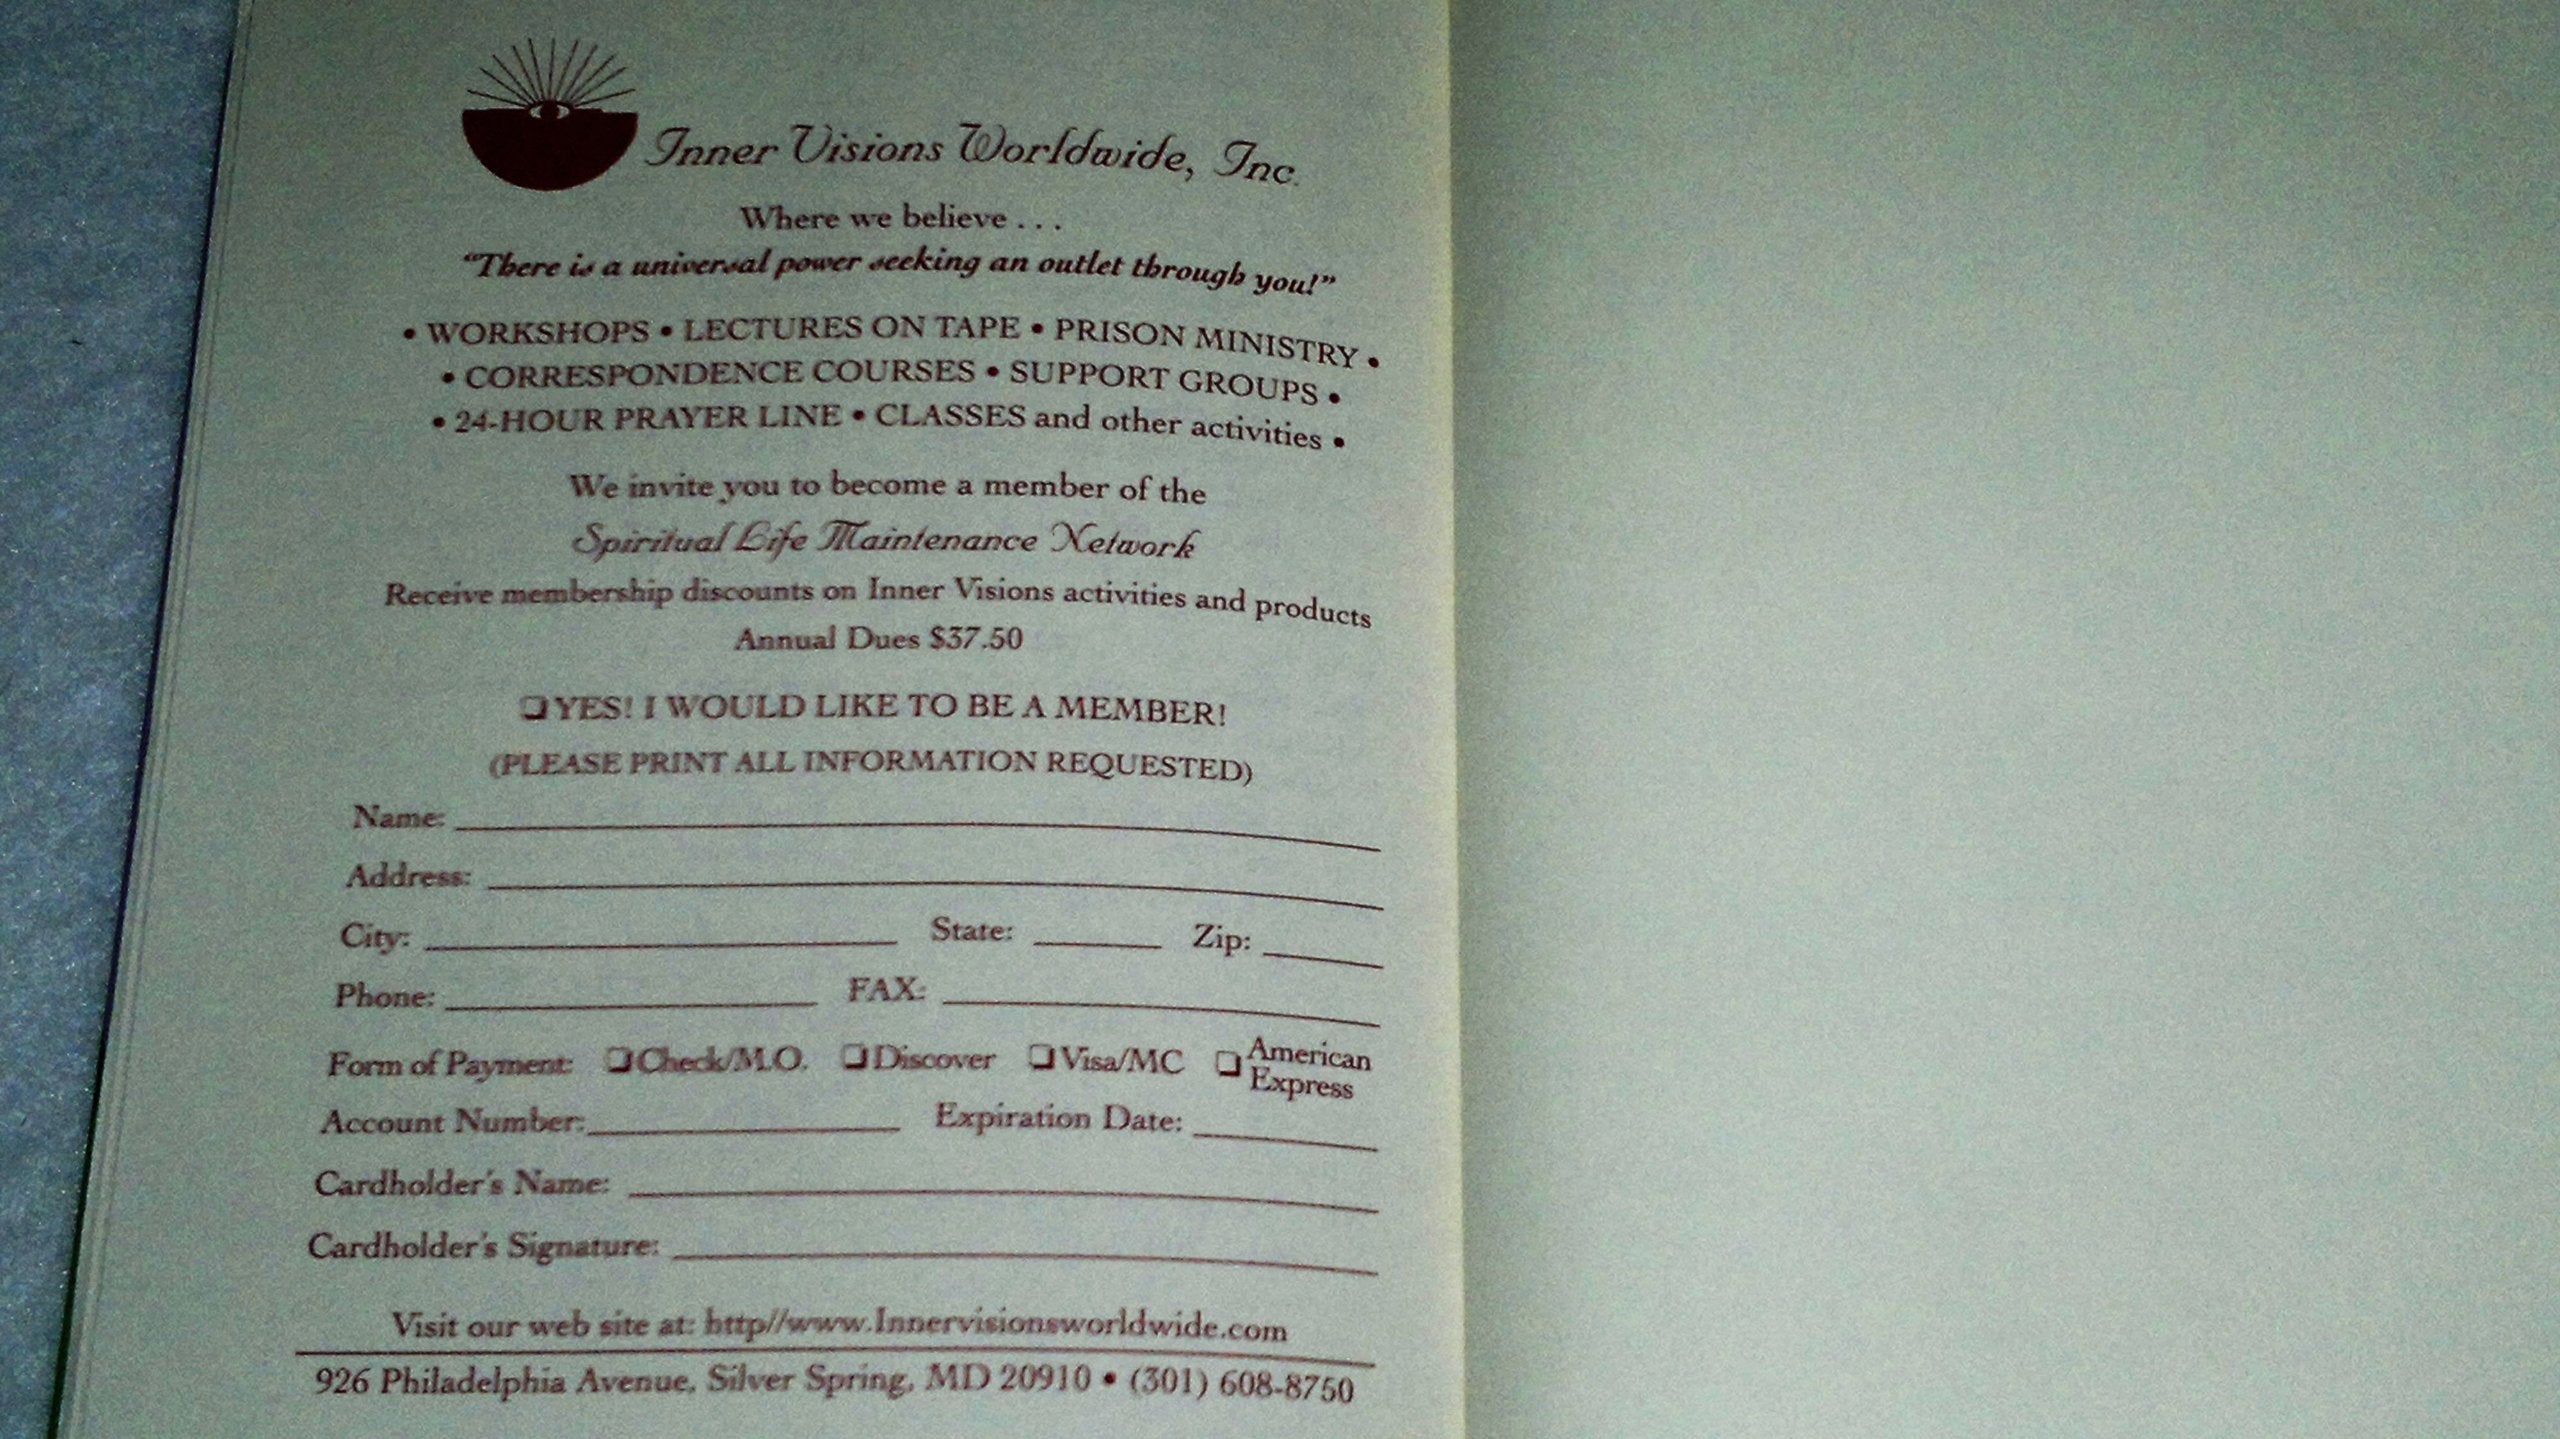 Inner Visions Worldwide, Inc.
Where we believe . . .
"There is a universal power seeking an outlet through you!"
• WORKSHOPS • LECTURES ON TAPE • PRISON MINISTRY •
• CORRESPONDENCE COURSES • SUPPORT GROUPS •
• 24-HOUR PRAYER LINE • CLASSES and other activities •
We invite you to become a member of the
Spiritual Life Maintenance Network
Receive membership discounts on Inner Visions activities and products
Annual Dues $37.50
❑ YES! I WOULD LIKE TO BE A MEMBER!
(PLEASE PRINT ALL INFORMATION REQUESTED)
Name:
Address:
City: State: Zip:
Phone: FAX:
Form of Payment: ❑ Check/M.O. ❑ Discover ❑ Visa/MC ❑ American Express
Account Number: Expiration Date:
Cardholder's Name:
Cardholder's Signature:
Visit our web site at: http//www.Innervisionsworldwide.com
926 Philadelphia Avenue, Silver Spring, MD 20910 • (301) 608-8750